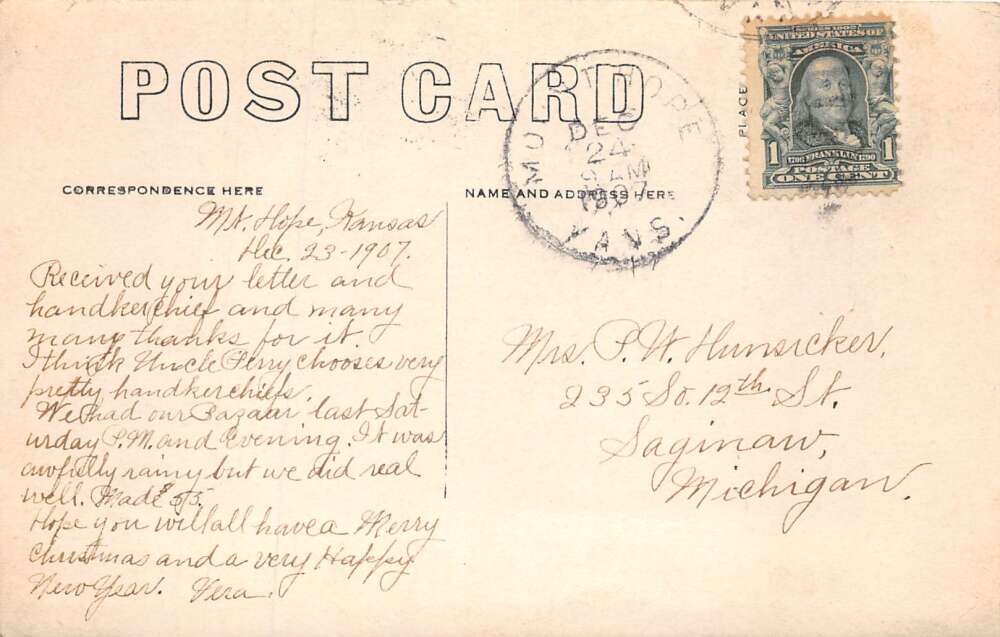 POST CARD
CORRESPONDENCE HERE
Mt. Hope, Kansas
Dec. 23-1907.
Received your letter and
handkerchief and many
many thanks for it.
I think Uncle Perry chooses very
pretty handkerchiefs.
We had our Bazaar last Sat-
urday P.M. and evening. It was
awfully rainy but we did real
well. Made $55.
Hope you will all have a Merry
Christmas and a very Happy
New Year. Vera.
NAME AND ADDRESS HERE
MOUNT HOPE
DEC
24
9 AM
1907
KANS.
PLACE
SERIES 1902
UNITED STATES OF
AMERICA
1 1
1706 FRANKLIN 1790
POSTAGE
ONE CENT
Mrs. P. W. Hunsicker,
235 So. 12th St.
Saginaw,
Michigan.